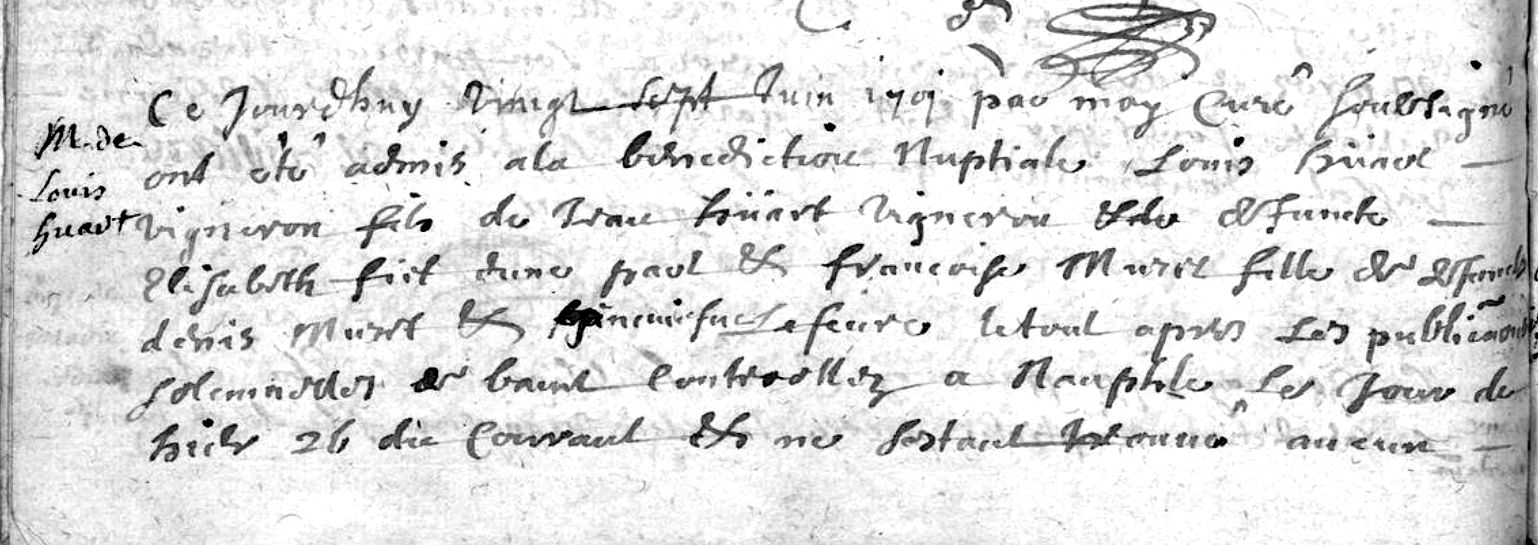 Ce Jourdhuy Vingt sept Juin 1701 par moy Curé soubsigné
M. de
ont eté admis ala benediction Nuptiale Louis hüart
Louis
huart
Vigneron fils de Jean hüart Vigneron & de defuncte
Elisabeth fiet dune part & francoise Muret fille de defunct
denis Muret & Lefeure le tout apres Les publicãons
solemnelles de bancs Controllez a Neauphle Le Jour de
hier 26 du Courant & ne sestant trouué aucun